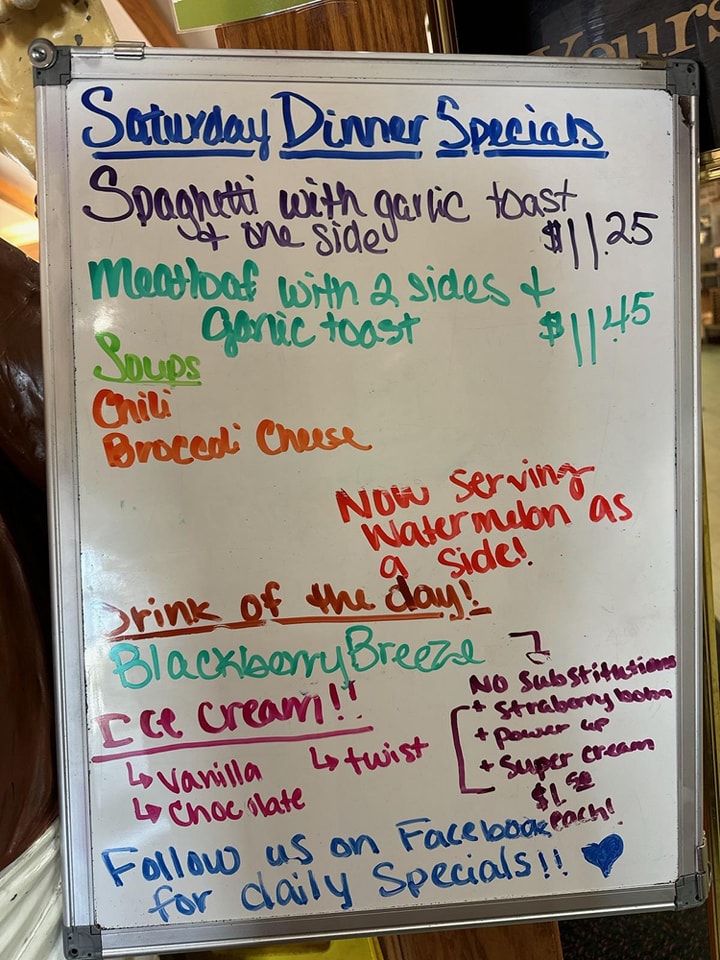 Yours
Saturday Dinner Specials
Spaghetti with garlic toast
+ one side $11.25
Meatloaf with 2 sides +
garlic toast $11.45
Soups
Chili
Broccoli Cheese
Now Serving
Watermelon as
a side!
Drink of the day!
Blackberry Breeze
No Substitutions
+ Straberry boba
+ Power up
+ Super cream
$1.50
each!
Ice Cream!!
↳ Vanilla ↳ twist
↳ Chocolate
Follow us on Facebook
for daily Specials!!